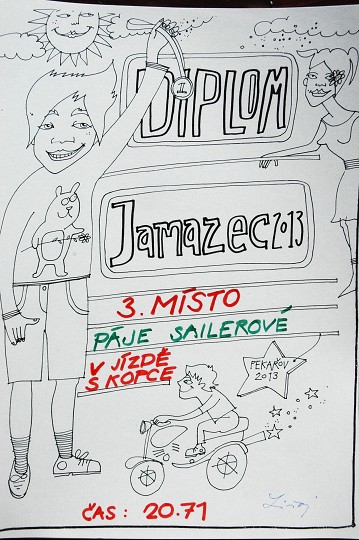 DIPLOM
Jamazec 2013
3. MÍSTO
PÁJE SAILEROVÉ
V JÍZDĚ
S KOPCE
PEKAŘOV
2013
ČAS: 20.71